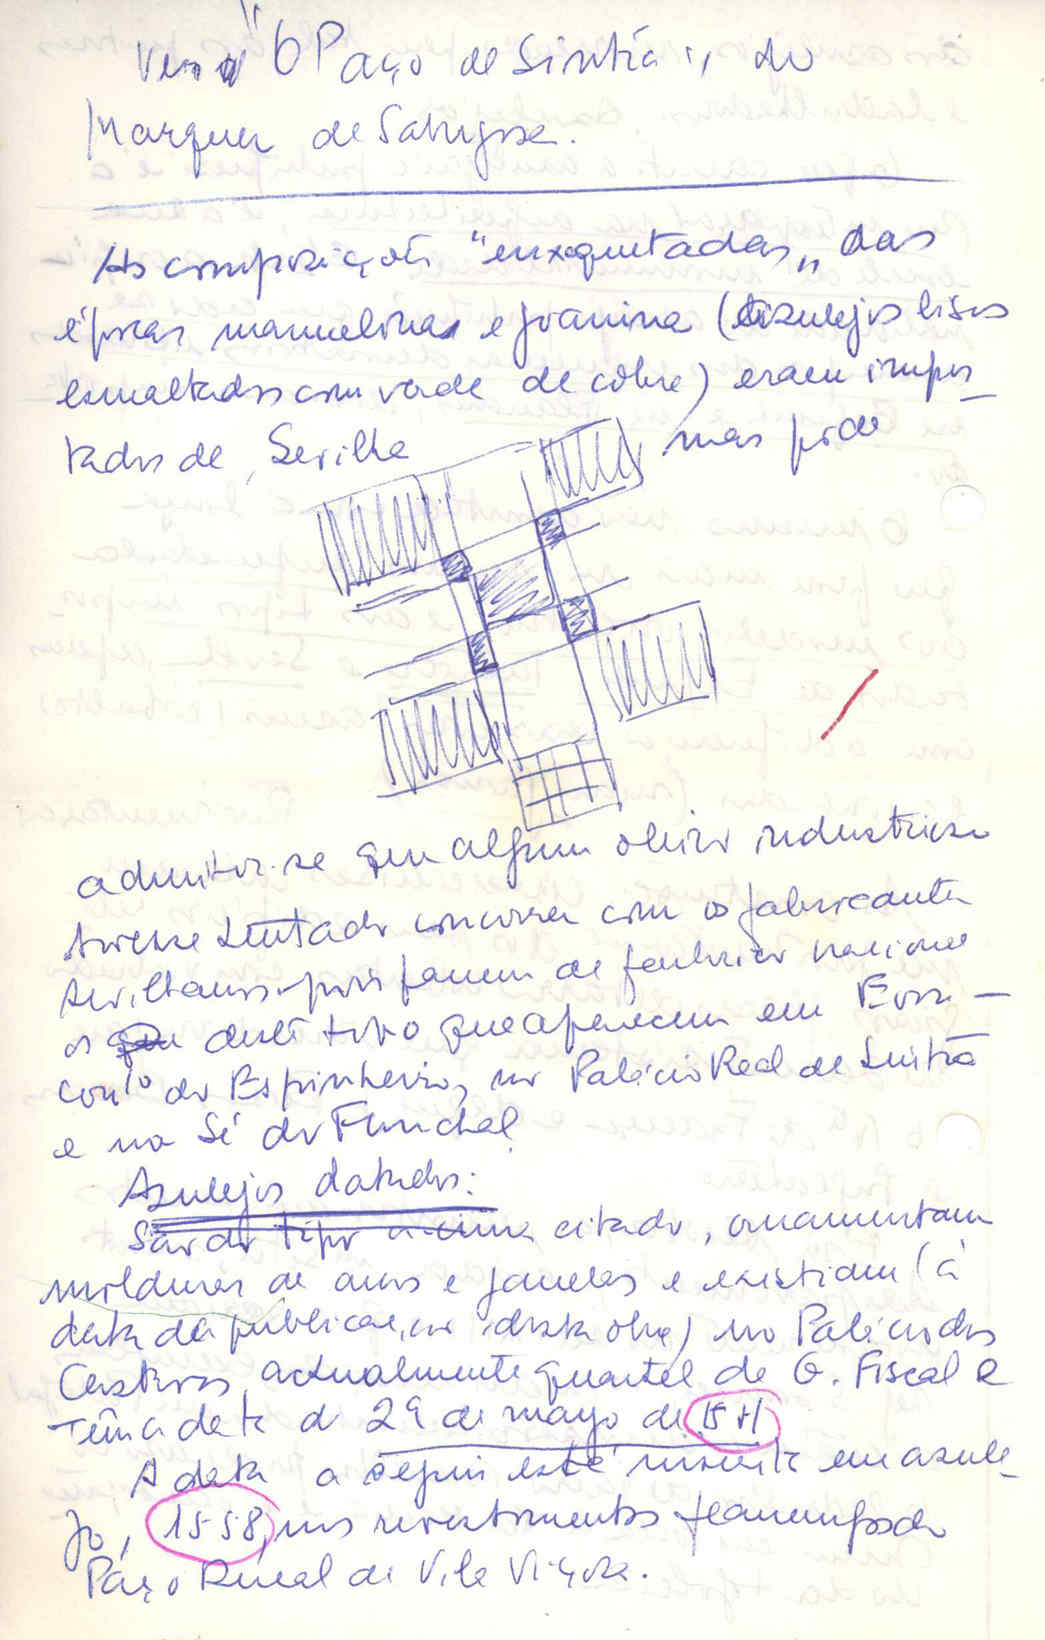 Ver "O Paço de Sintra", do
Marquez de Sabugosa.
As composições "enxaquetadas" das
épocas manuelina e joanina (azulejos lisos
esmaltados com verde de cobre) eram impor-
tados de Sevilha mas pode
admitir-se que algum oleiro industrioso
tivesse tentado concorrer com os fabricantes
sevilhanos pois parecem de fabrico nacional
os deste tipo que aparecem em Evora -
Conto do Espinheiro, no Palácio Real de Sintra
e na Sé do Funchal
Azulejos datados:
São do tipo acima citado, ornamentam
molduras de arcos e janelas e existiam (à
data da publicação desta obra) no Palácio dos
Castros, actualmente quartel de G. Fiscal e
Têm a data de de mayo de
A data a seguir está inscrita em azule-
jo, 1558, nos revestimentos flamengos do
Paço Ducal de Vila Viçosa.